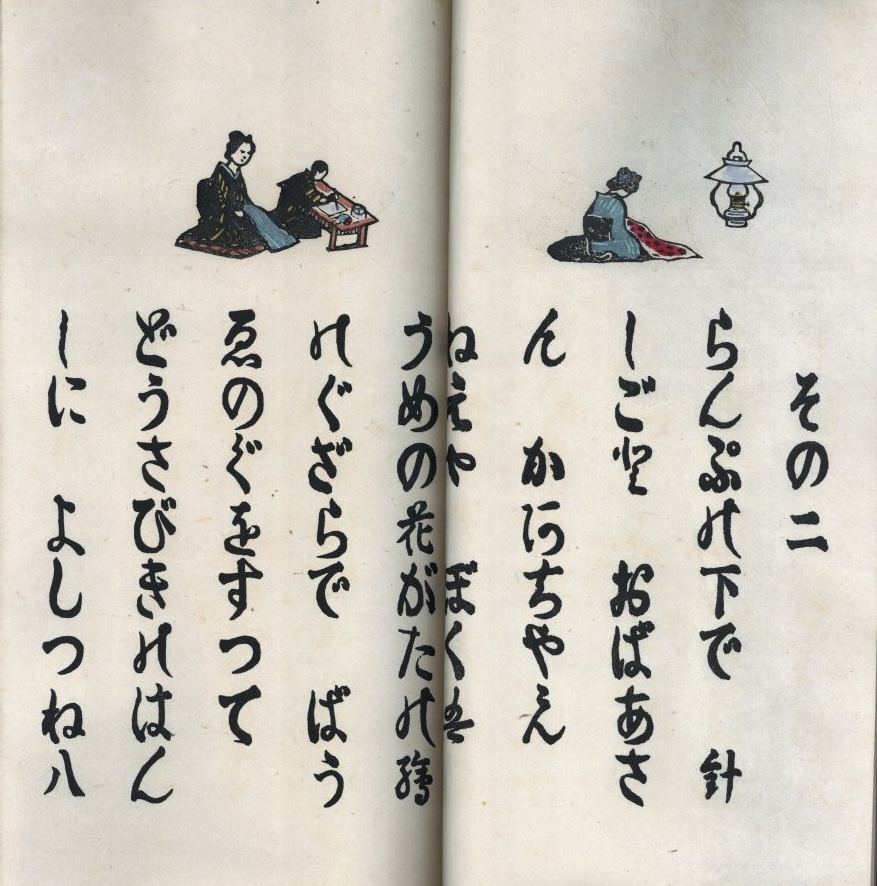 その二
らんぷの下で　針
しごと　おばあさ
ん　かあちやん
ねえや　ぼくは
うめの花がたの繪
のぐざらで　ばう
ゑのぐをすつて
どうさびきのはん
しに　よしつね八